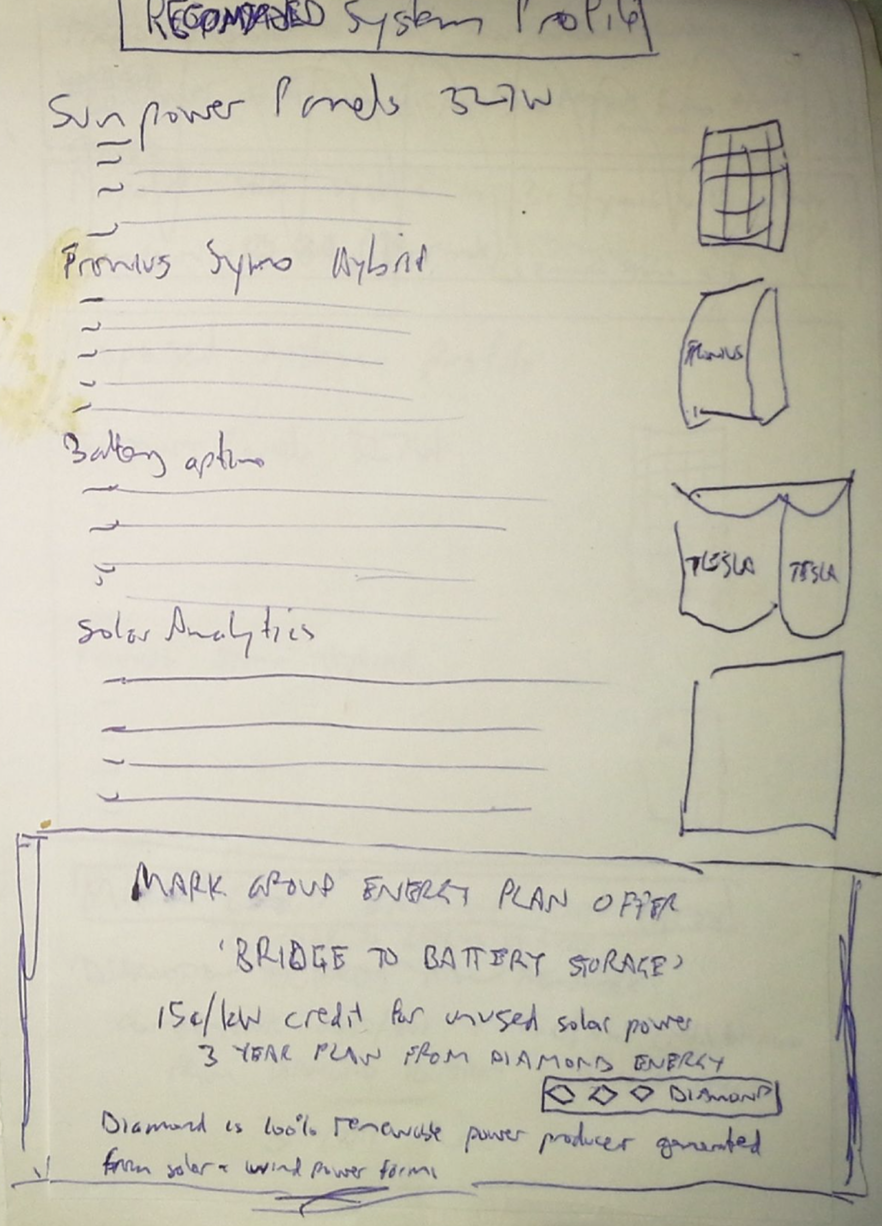 RECOMMENDED System Profile
Sunpower Panels 327W
Fronius Symo Hybrid
FRONIUS
Battery options
TESLA TESLA
Solar Analytics
MARK GROUP ENERGY PLAN OFFER
'BRIDGE TO BATTERY STORAGE'
15c/kW credit for unused solar power
3 YEAR PLAN FROM DIAMOND ENERGY
DIAMOND
Diamond is 100% renewable power producer generated
from solar + wind power farms